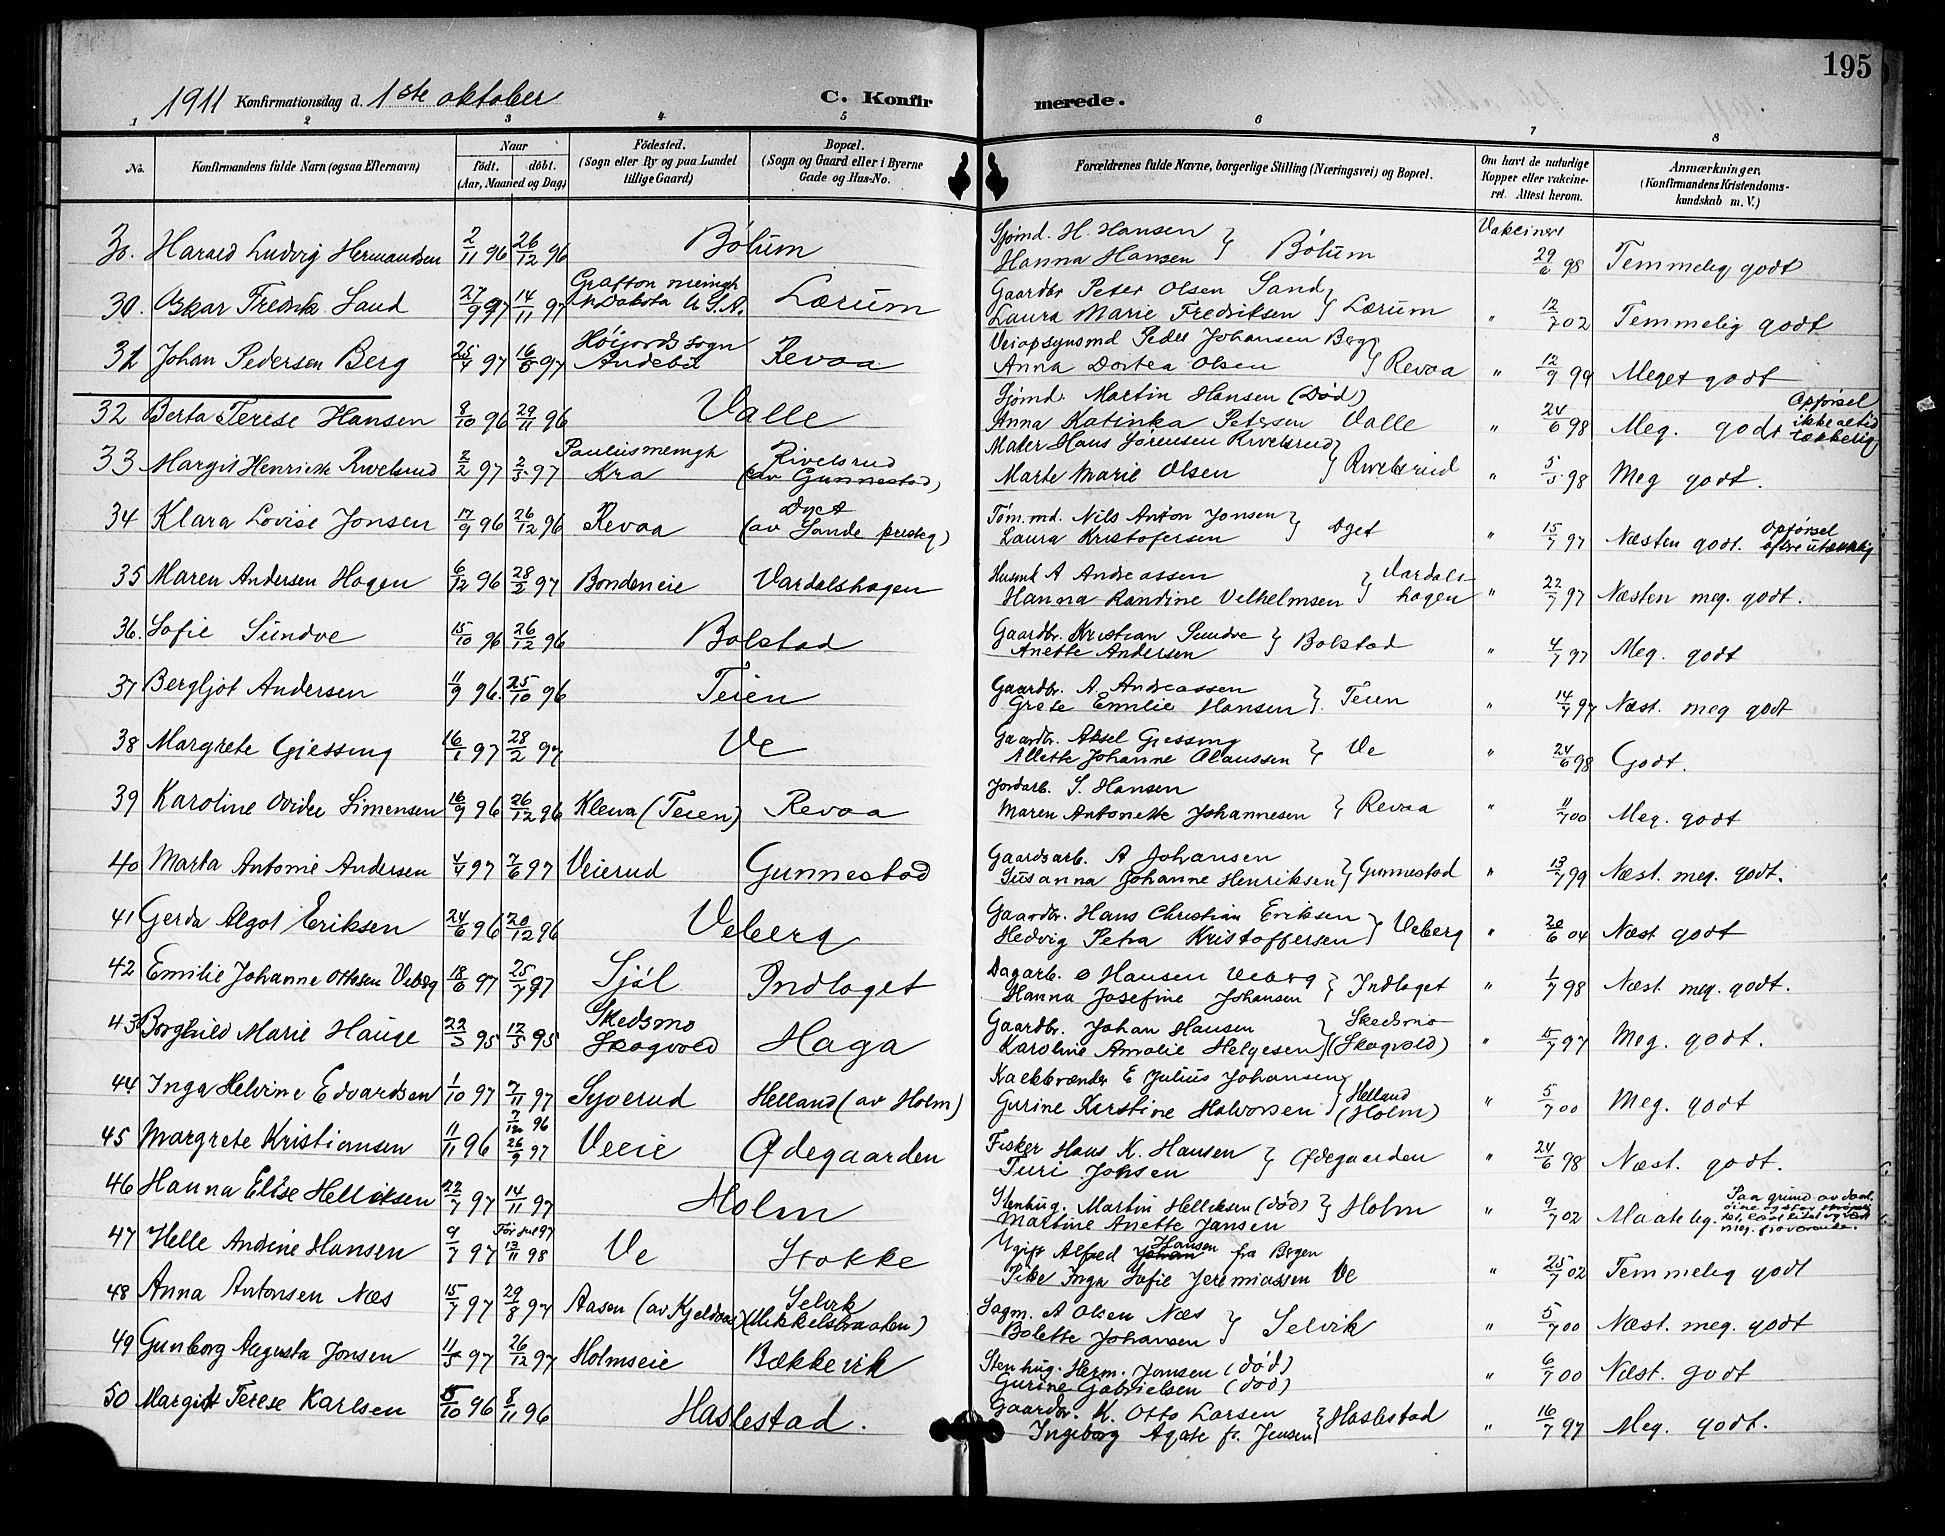 195
1911 Konfirmationsdag d. 1ste oktober C. Konfirmerede.
1 2 3 4 5 6 7 8
No. Konfirmandens fulde Navn (ogsaa Efternavn) Naar født. døbt. (Aar, Maaned og Dag) Fødested. (Sogn eller By og paa Landet tillige Gaard) Bopæl. (Sogn og Gaard eller i Byerne Gade og Hus-No. Forældrenes fulde Navne, borgerlige Stilling (Næringsvei) og Bopæl. Om havt de naturlige Kopper eller vakcineret. Attest herom. Anmærkninger, (Konfirmandens Kristendomskundskab m. V.)
Harald Ludvig Hermandsen 2/11 96 26/12 96 Bólum Sjómd. H. Hansen Hanna Hansen } Bólum Vakcinert 29/6 98 Temmelig godt
30. Oskar Fredrik Sand 27/9 97 14/11 97 Grafton menigh N Dakota U.S.A. Lærum Gaardbr Peter Olsen Sand Laura Marie Fredriksen } Lærum " 12/7 02 Temmelig godt
31 Johan Pedersen Berg 25/4 97 16/8 97 Høijords sogn Andebu Revaa Veiopsynsmd Peder Johansen Berg Anna Dortea Olsen } Revaa " 12/9 99 Meget godt
32 Berta Terese Hansen 8/10 96 29/11 96 Valle Sjómd. Martin Hansen (Død) Anna Katinka Petersen Valle " 24/6 98 Meg. godt Opførsel ikke altid tækkelig
33 Margit Henriette Rivelsrud 2/2 97 2/5 97 Paulusmenigh Kra Rivelsrud (av Gunnestad) Maler Hans Jørensen Rivelsrud Marte Marie Olsen } Rivelsrud " 5/5 98 Meg godt.
34 Klara Lovise Jonsen 17/9 96 26/12 96 Revaa Dyet (av Sande prestg) Tóm.md. Nils Anton Jonsen Laura Kristofersen } Dyet " 15/7 97 Næsten godt. Opførsel ofte utækkelig
35 Maren Andersen Hagen 6/12 96 28/2 97 Bondeneie Vardalshagen Husmd A Andreassen Hanna Randine Velhelmsen } Vardalshagen " 22/7 97 Næsten meg. godt.
36. Sofie Sundve 15/10 96 26/12 96 Bolstad Gaardbr. Kristian Sundve Anette Andersen } Bolstad " 4/7 97 Meg. godt
37 Bergljot Andersen 11/9 96. 25/10 96 Teien Gaardbr. A. Andreassen Grete Emilie Hansen } Teien " 14/7 97 Næst. meg godt
38 Margrete Gjessing 16/1 97 28/2 97 Ve Gaardbr. Aksel Gjessing Allette Johanne Claussen } Ve " 24/6 98 Godt.
39 Karoline Ovidee Simensen 16/9 96 26/12 96 Kleiva (Teien) Revaa Jordarb. S. Hansen Maren Antonette Johannesen } Revaa " 11/7 00 Meg. godt
40 Marta Antonie Andersen 4/4 97 7/6 97 Veierud Gunnestad Gaardsarb. A Johansen Susanna Johanne Henriksen } Gunnestad " 13/7 99 Næst. meg. godt.
41 Gerda Algot Eriksen 24/6 96 20/12 96 Veberg Gaardbr. Hans Christian Eriksen Hedvig Petra Kristoffersen } Veberg " 20/6 04 Næst godt
42 Emilie Johanne Ottosen Veberg 18/6 97 25/7 97 Sjól Indlaget Dagarb. O Hansen Veberg Hanna Josefine Johansen } Indlaget " 1/7 98 Næst. meg. godt.
43 Borghild Marie Hauge 22/3 95 12/5 95 Skedsmo Skogvold Haga Gaardbr. Johan Hansen Karoline Amalie Helgesen } Skedsmo (Skogvold) " 15/7 97 Meg. godt.
44. Inga Helvine Edvardsen 1/10 97 7/11 97 Syverud Helland (av Holm) Kalkbrænder E Julius Johansen Gurine Kirstine Halvorsen } Helland (Holm) " 5/7 00 Meg. godt
45 Margrete Kristiansen 11/11 96 7/12 96 26/9 97 Veeie Ødegaarden Fisker Hans K. Hansen Turi Johsen } Ødegaarden " 24/6 98 Næst. godt.
46 Hanna Elise Helliksen 22/7 97 14/11 97 Holm Stenhug. Martin Helleksen (død) Martine Anette Jansen } Holm " 9/7 02 Maatelig. Paa grund av
47 Helle Andine Hansen 9/7 97 13/11 98 Ve Stokke Ugift Alfred Johan Hansen fra Bergen Pike Inga Sofie Jeremiassen Ve " 25/7 02 Temmelig godt
48 Anna Antonsen Næs 15/7 97 29/8 97 Aasen (av Kjeldaas) Selvik (Mikkelsbraaten) Sagm. A Olsen Næs Bolette Johansen } Selvik " 5/7 00 Næst. meg. godt
49 Gunborg Augusta Jonsen 11/5 97 26/12 97 Holmseie Bækkevik Stenhug. Herm. Jonsen (død) Gurine Gabrielsen (død) " 6/7 00 Næst. godt
50 Margit Terese Karlsen 5/10 96 8/11 96 Haslestad. Gaardbr. K. Otto Larsen Ingeborg Agate f. Jensen } Haslestad " 16/7 97 Meg. godt.